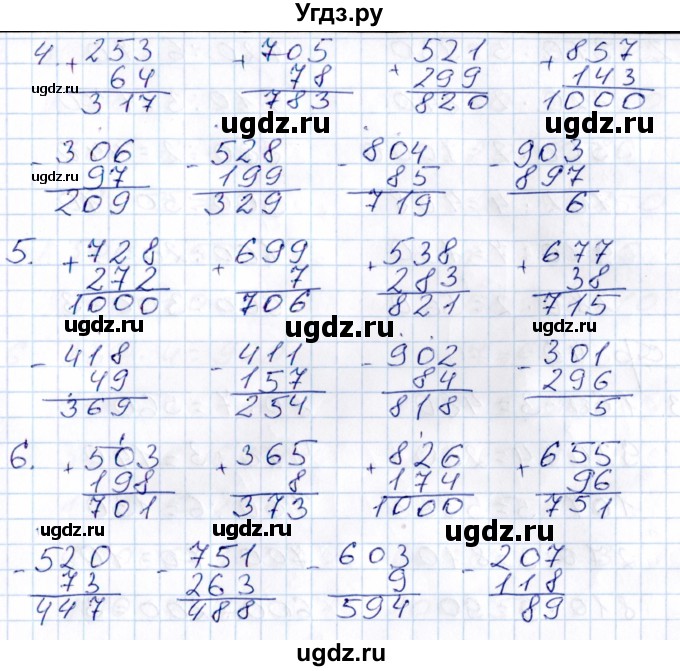 Угдз.ру
4. + 253 + 705 + 521 + 857
64 78 299 143
317 783 820 1000
ugdz.ru ugdz.ru ugdz.ru ugdz.ru
- 306 - 528 - 804 - 903
97 199 85 897
209 329 719 6
ugdz.ru ugdz.ru ugdz.ru
5. + 728 + 699 + 538 + 677
272 7 283 38
1000 706 821 715
ugdz.ru ugdz.ru ugdz.ru
- 418 - 411 - 902 - 301
49 157 84 296
369 254 818 5
ugdz.ru ugdz.ru
6. + 503 + 365 + 826 + 655
198 8 174 96
701 373 1000 751
ugdz.ru ugdz.ru ugdz.ru
- 520 - 751 - 603 - 207
73 263 9 118
447 488 594 89
ugdz.ru ugdz.ru